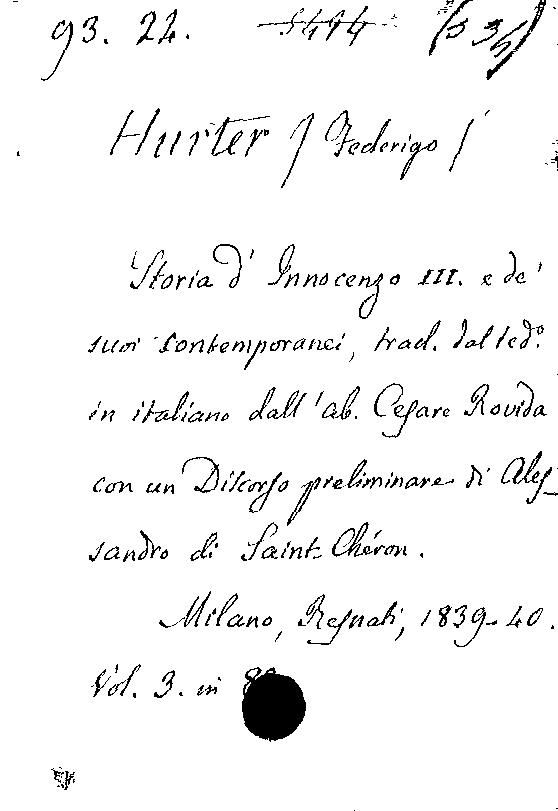 93. 22. 5494 (335)
Hurter / Federigo /
Storia d' Innocenzo III. e de'
suoi contemporanei, trad. dal ted.º
in italiano dall'ab. Cesare Rovida
con un Discorso preliminare di Ales-
sandro di Saint-Chéron.
Milano, Resnati, 1839-40.
Vol. 3. in 8º